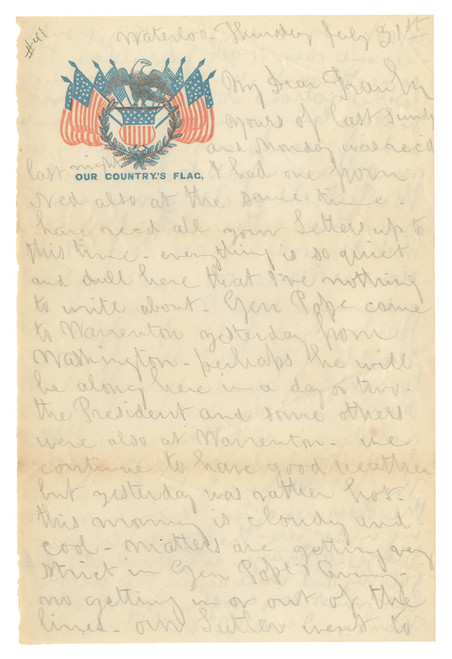 #41
Waterloo - Thursday July 31st
My Dear Franky
OUR COUNTRY'S FLAG.
Yours of last Sunday
and Monday was recd
last night & I had one from
Ned also at the same time -
have recd all your Letters up to
this time - everything is so quiet
and dull here that Ive nothing
to write about - Gen Pope came
to Warrenton yesterday from
Washington - perhaps he will
be along here in a day or two -
the President and some others
were also at Warrenton - we
continue to have good weather
but yesterday was rather hot -
this morning is cloudy and
cool - matters are getting very
strict in Gen Pope's Army
no getting in or out of the
lines - our Sutler went to